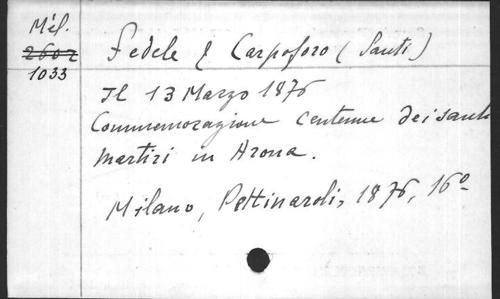 Mél.
2602
1033
Fedele & Carpoforo (Santi)
Il 13 Marzo 1876
Commemorazione centenne dei santi
martiri in Arona.
Milano, Pettinaroli, 1876, 16º